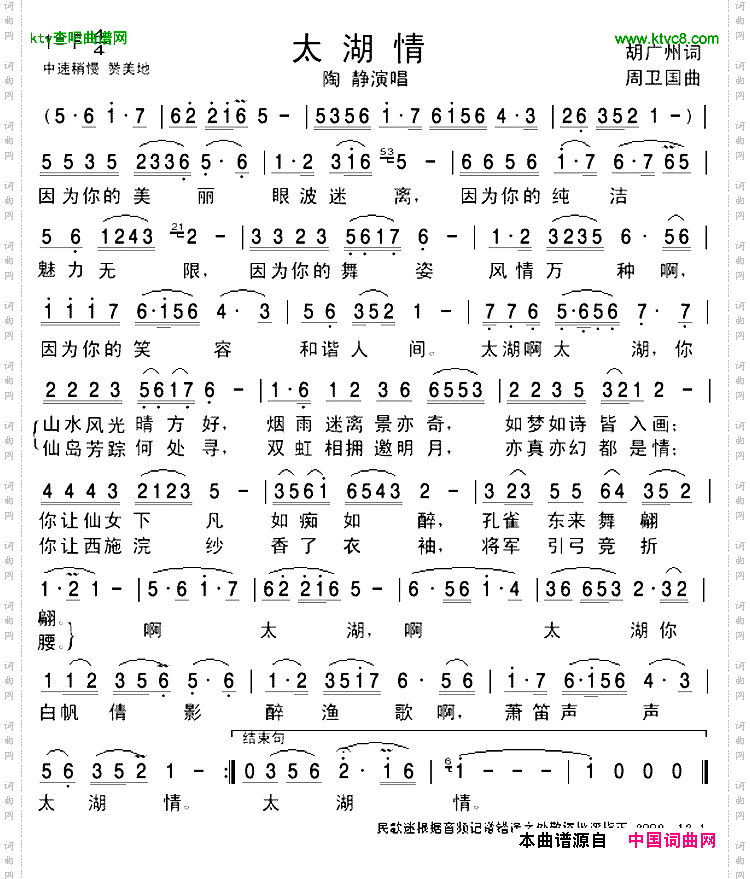 ktv查吧曲谱网
www.ktvc8.com
1=F 4/4
太湖情
中速稍慢 赞美地
陶 静演唱
胡广州词
周卫国曲
(5·6 1·7 | 62 216 5 - | 5356 1761 6156 4·3 | 26 352 1 -) |
5 5 3 5 2336 5·6 | 1·2 316 5 - | 6 6 5 6 1·7 6·7 65 |
因为你的 美 丽 眼波迷 离, 因为你的纯 洁
5 6 1243 2 - | 3 3 2 3 5617 6 - | 1·2 3235 6· 56 |
魅力无 限, 因为你的舞 姿 风情万 种啊,
1 1 1 7 6·156 4·3 | 5 6 352 1 - | 7 7 6 5·656 7·7 |
因为你的笑 容 和谐人 间。 太湖啊太 湖,你
2 2 2 3 5617 6 - | 1·6 1 2 3 6 6553 | 2 2 3 5 3212 - |
山水风光晴方好, 烟雨迷离景亦奇, 如梦如诗皆入画;
仙岛芳踪何处寻, 双虹相拥邀明月, 亦真亦幻都是情;
4 4 4 3 2123 5 - | 3561 6543 2 - | 3 23 5 5 64 35 2 |
你让仙女下 凡 如痴如 醉, 孔雀 东来舞 翩
你让西施浣 纱 香了衣 袖, 将军 引弓竞 折
1·2 1 - | 5·6 1·7 | 62 216 5 - | 6·56 1·4 | 36 653 2·32 |
翩。 啊 太 湖, 啊 太 湖你
腰。
1 12 3 5 6 5·6 | 1·2 3517 6· 56 | 1·7 6·156 4·3 |
白帆倩 影 醉渔 歌啊, 萧笛声 声
结束句
5 6 352 1 - :| 0 3 5 6 2· 16 | 1 - - - | 1 0 0 0 ||
太湖 情。 太湖 情。
本曲谱源自 中国词曲网
词曲网